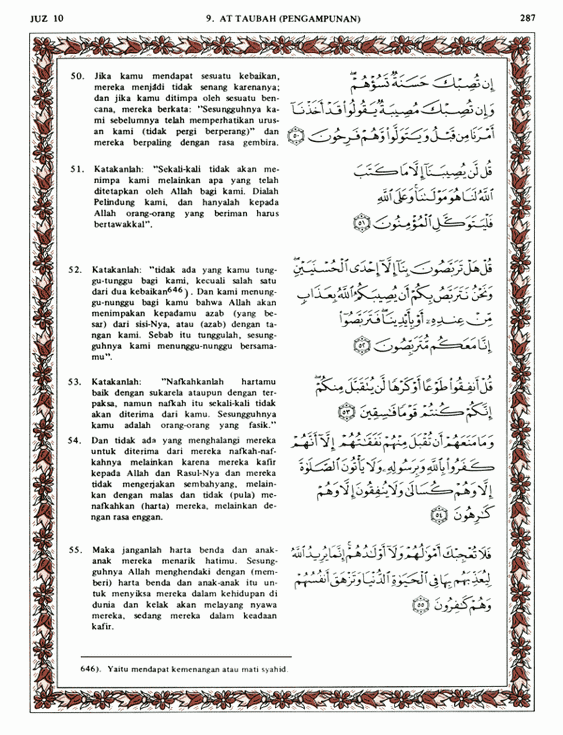 JUZ 10
9. AT TAUBAH (PENGAMPUNAN)
287
50. Jika kamu mendapat sesuatu kebaikan,
mereka menjadi tidak senang karenanya;
dan jika kamu ditimpa oleh sesuatu ben-
cana, mereka berkata: "Sesungguhnya ka-
mi sebelumnya telah memperhatikan urus-
an kami (tidak pergi berperang)" dan
mereka berpaling dengan rasa gembira.
إِن تُصِبْكَ حَسَنَةٌ تَسُؤْهُمْ
وَإِن تُصِبْكَ مُصِيبَةٌ يَقُولُوا۟ قَدْ أَخَذْنَآ
أَمْرَنَا مِن قَبْلُ وَيَتَوَلَّوا۟ وَّهُمْ فَرِحُونَ ٥٠
51. Katakanlah: "Sekali-kali tidak akan me-
nimpa kami melainkan apa yang telah
ditetapkan oleh Allah bagi kami. Dialah
Pelindung kami, dan hanyalah kepada
Allah orang-orang yang beriman harus
bertawakkal".
قُل لَّن يُصِيبَنَآ إِلَّا مَا كَتَبَ
ٱللَّهُ لَنَا هُوَ مَوْلَىٰنَا وَعَلَى ٱللَّهِ
فَلْيَتَوَكَّلِ ٱلْمُؤْمِنُونَ ٥١
52. Katakanlah: "tidak ada yang kamu tung-
gu-tunggu bagi kami, kecuali salah satu
dari dua kebaikan646). Dan kami menung-
gu-nunggu bagi kamu bahwa Allah akan
menimpakan kepadamu azab (yang be-
sar) dari sisi-Nya, atau (azab) dengan ta-
ngan kami. Sebab itu tunggulah, sesung-
guhnya kami menunggu-nunggu bersama-
mu".
قُلْ هَلْ تَرَبَّصُونَ بِنَآ إِلَّآ إِحْدَى ٱلْحُسْنَيَيْنِ
وَنَحْنُ نَتَرَبَّصُ بِكُمْ أَن يُصِيبَكُمُ ٱللَّهُ بِعَذَابٍ
مِّنْ عِندِهِۦٓ أَوْ بِأَيْدِينَا فَتَرَبَّصُوٓا۟
إِنَّا مَعَكُم مُّتَرَبِّصُونَ ٥٢
53. Katakanlah: "Nafkahkanlah hartamu
baik dengan sukarela ataupun dengan ter-
paksa, namun nafkah itu sekali-kali tidak
akan diterima dari kamu. Sesungguhnya
kamu adalah orang-orang yang fasik."
قُلْ أَنفِقُوا۟ طَوْعًا أَوْ كَرْهًا لَّن يُتَقَبَّلَ مِنكُمْ
إِنَّكُمْ كُنتُمْ قَوْمًا فَٰسِقِينَ ٥٣
54. Dan tidak ada yang menghalangi mereka
untuk diterima dari mereka nafkah-naf-
kahnya melainkan karena mereka kafir
kepada Allah dan Rasul-Nya dan mereka
tidak mengerjakan sembahyang, melain-
kan dengan malas dan tidak (pula) me-
nafkahkan (harta) mereka, melainkan de-
ngan rasa enggan.
وَمَا مَنَعَهُمْ أَن تُقْبَلَ مِنْهُمْ نَفَقَٰتُهُمْ إِلَّآ أَنَّهُمْ
كَفَرُوا۟ بِٱللَّهِ وَبِرَسُولِهِۦ وَلَا يَأْتُونَ ٱلصَّلَوٰةَ
إِلَّا وَهُمْ كُسَالَىٰ وَلَا يُنفِقُونَ إِلَّا وَهُمْ
كَٰرِهُونَ ٥٤
55. Maka janganlah harta benda dan anak-
anak mereka menarik hatimu. Sesung-
guhnya Allah menghendaki dengan (mem-
beri) harta benda dan anak-anak itu un-
tuk menyiksa mereka dalam kehidupan di
dunia dan kelak akan melayang nyawa
mereka, sedang mereka dalam keadaan
kafir.
فَلَا تُعْجِبْكَ أَمْوَٰلُهُمْ وَلَآ أَوْلَٰدُهُمْ إِنَّمَا يُرِيدُ ٱللَّهُ
لِيُعَذِّبَهُم بِهَا فِى ٱلْحَيَوٰةِ ٱلدُّنْيَا وَتَزْهَقَ أَنفُسُهُمْ
وَهُمْ كَٰفِرُونَ ٥٥
646). Yaitu mendapat kemenangan atau mati syahid.